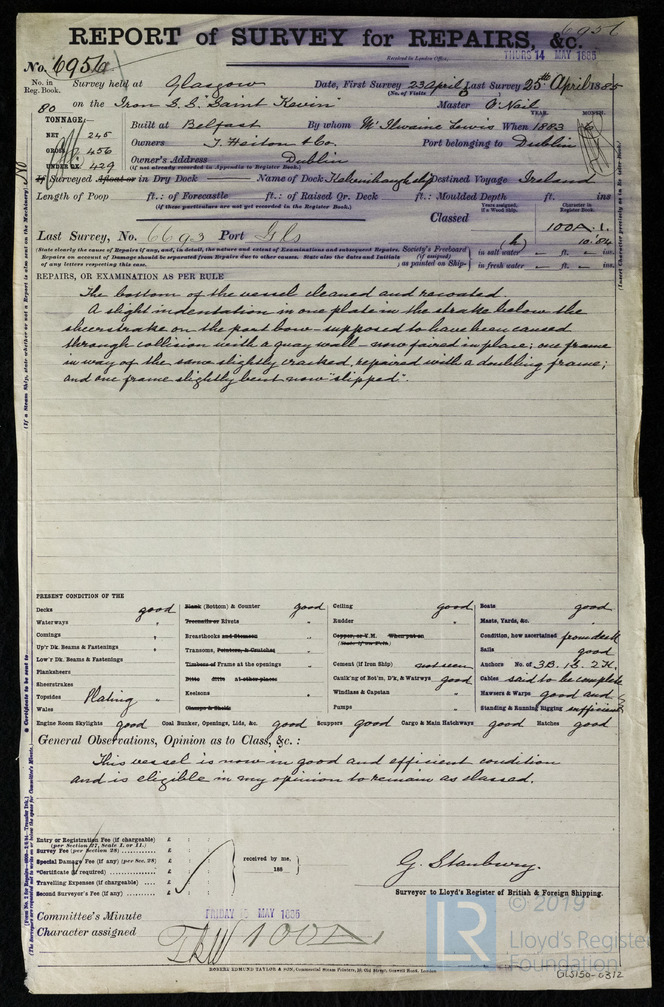 6956
REPORT of SURVEY for REPAIRS, &c.
Received in London Office, THURS 14 MAY 1885
No. 6956
No. in Reg. Book. Survey held at Glasgow Date, First Survey 23 April Last Survey 25th April 1885
(No. of Visits)
80 on the Iron S.S. "Saint Kevin" Master O'Neil
TONNAGE:— YEAR. MONTH.
NET 245 Built at Belfast By whom McIlwaine Lewis When 1883
GROSS 456 Owners J. Heiton & Co. Port belonging to Dublin
UNDER DK 429 Owner's Address Dublin
(if not already recorded in Appendix to Register Book.)
If Surveyed Afloat or in Dry Dock Name of Dock Kelvinhaugh slip Destined Voyage Ireland
Length of Poop ft.: of Forecastle ft.: of Raised Qr. Deck ft.: Moulded Depth ft. ins
(if these particulars are not yet recorded in the Register Book.)
Years assigned, if a Wood Ship. Character in Register Book.
Classed 100A.1.
Last Survey, No. 6693 Port Gls 10.84
(State clearly the cause of Repairs if any, and, in detail, the nature and extent of Examinations and subsequent Repairs.
Repairs on account of Damage should be separated from Repairs due to other causes. State also the dates and Initials
of any letters respecting this case.
Society's Freeboard (if assigned) as painted on Ship- in salt water – ft. – ins.
in fresh water – ft. – ins.
REPAIRS, OR EXAMINATION AS PER RULE
The bottom of the vessel cleaned and recoated.
A slight indentation in one plate in the strake below the
sheerstrake on the port bow – supposed to have been caused
through collision with a quay wall – now faired in place; one frame
in way of the same slightly cracked, repaired with a doubling frame;
and one frame slightly bent now "slipped".
PRESENT CONDITION OF THE
Decks good
Waterways "
Comings "
Up'r Dk. Beams & Fastenings "
Low'r Dk. Beams & Fastenings
Planksheers
Sheerstrakes
Topsides Plating "
Wales
Blank (Bottom) & Counter good
Treenails or Rivets "
Breasthooks and Stemson "
Transoms, Pointers, & Crutches "
Timbers of Frame at the openings "
Ditto Ditto at other places
Keelsons "
Clamps & Shelfs
Ceiling good
Rudder "
Copper, or Y.M. When put on
Cement (if Iron Ship) not seen
Caulk'ng of Bot'm, D'k, & Watrwys good
Windlass & Capstan "
Pumps "
Boats good
Masts, Yards, &c. "
Condition, how ascertained from deck
Sails good
Anchors No. of 3B. 1S. 2K.
Cables said to be complete
Hawsers & Warps good and
Standing & Running Rigging sufficient
Engine Room Skylights good Coal Bunker, Openings, Lids, &c. good Scuppers good Cargo & Main Hatchways good Hatches good
General Observations, Opinion as to Class, &c. :
This vessel is now in good and efficient condition
and is eligible in my opinion to remain as classed.
Entry or Registration Fee (if chargeable) £
(per Section 27, Scale 1, or 11.)
Survey Fee (per Section 28) £
Special Damage Fee (if any) (per Sec. 28) £
*Certificate (if required) £
Travelling Expenses (if chargeable) £
Second Surveyor's Fee (if any) £
received by me,
188
G. Stanbury.
Surveyor to Lloyd's Register of British & Foreign Shipping.
Committee's Minute FRIDAY 15 MAY 1885
Character assigned 100A1
ROBERT EDMUND TAYLOR & SON, Commercial Steam Printers, 19, Old Street, Goswell Road, London
© 2019
LR
Lloyd's Register
Foundation
GLS150-0312